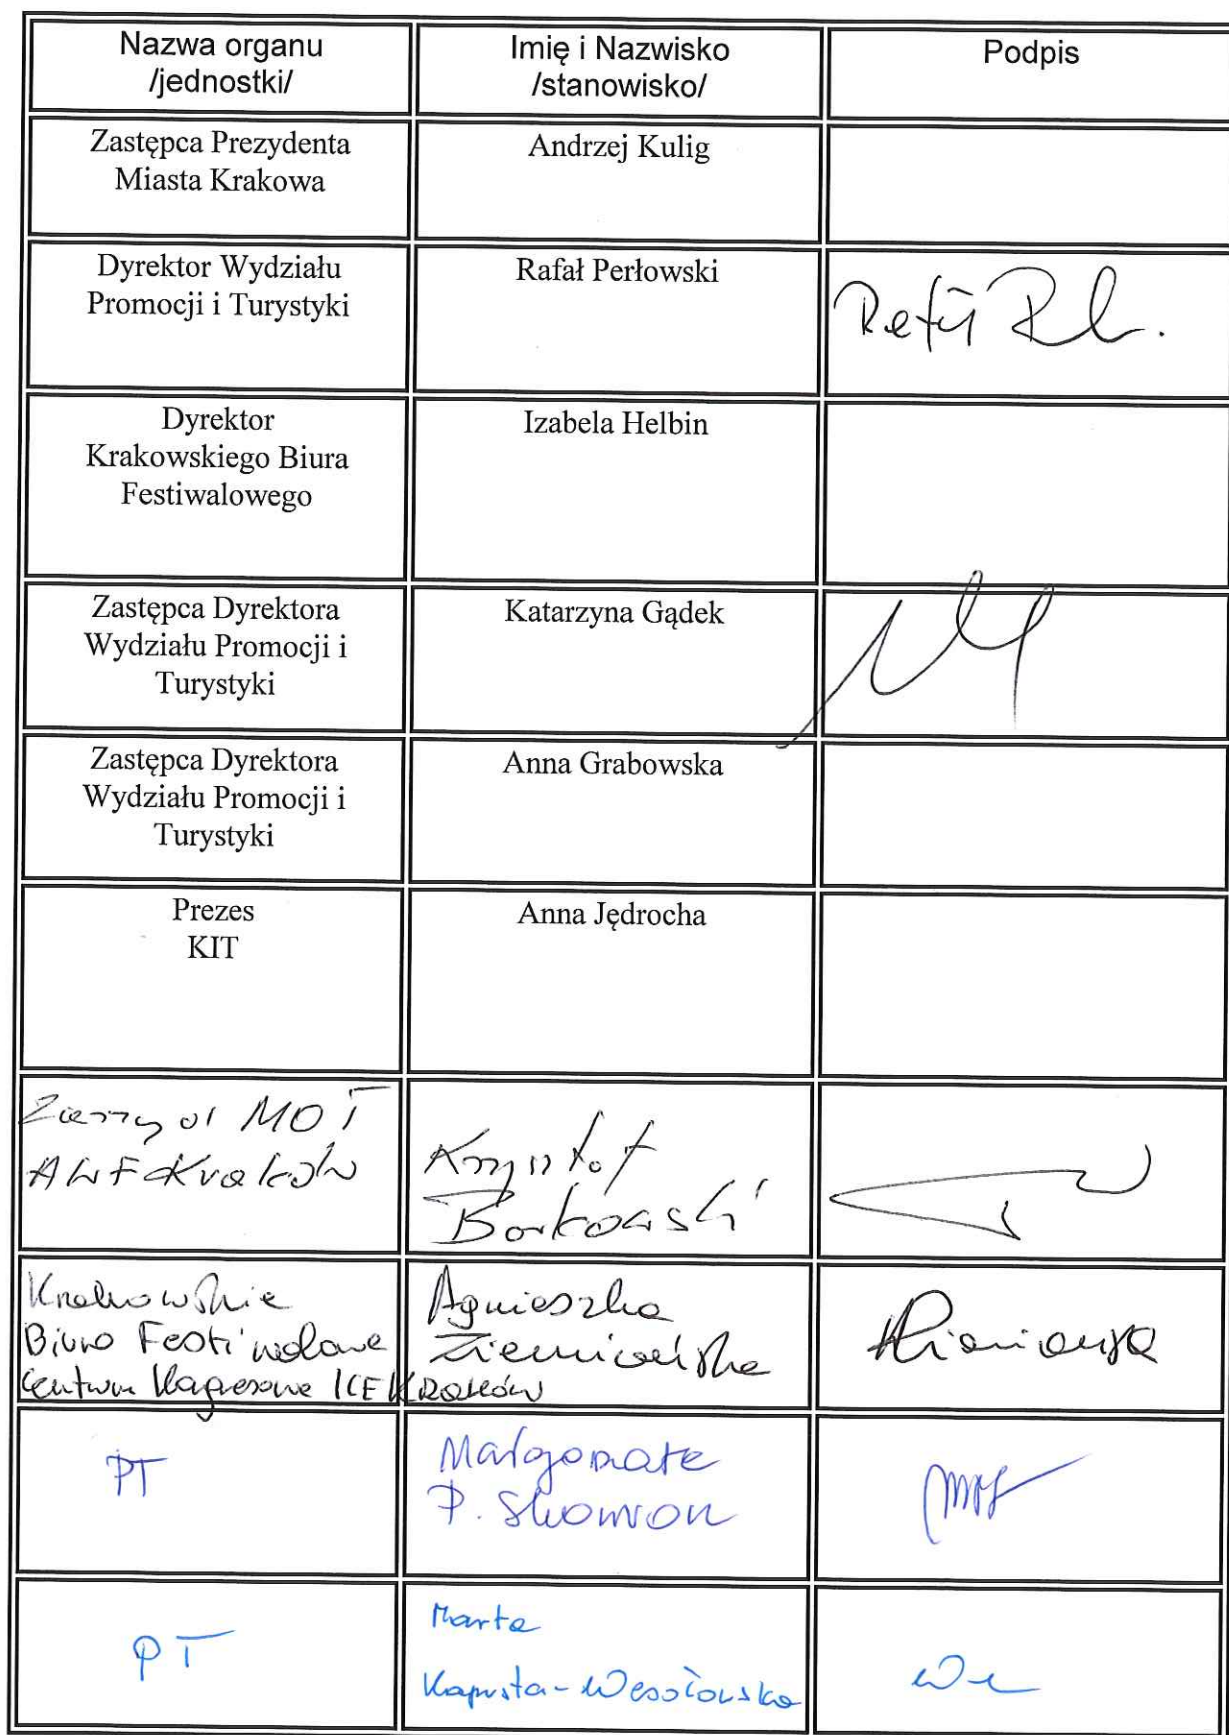 Nazwa organu
/jednostki/
Imię i Nazwisko
/stanowisko/
Podpis
Zastępca Prezydenta
Miasta Krakowa
Andrzej Kulig
Dyrektor Wydziału
Promocji i Turystyki
Rafał Perłowski
Dyrektor
Krakowskiego Biura
Festiwalowego
Izabela Helbin
Zastępca Dyrektora
Wydziału Promocji i
Turystyki
Katarzyna Gądek
Zastępca Dyrektora
Wydziału Promocji i
Turystyki
Anna Grabowska
Prezes
KIT
Anna Jędrocha
MOT
AWF Kraków
Krzysztof
Borkowski
Krakowskie
Biuro Festiwalowe
Centrum Kongresowe ICE Kraków
Agnieszka
PT
Małgorzata
P. Skowron
PT
Marta
Kapusta-Wesołowska